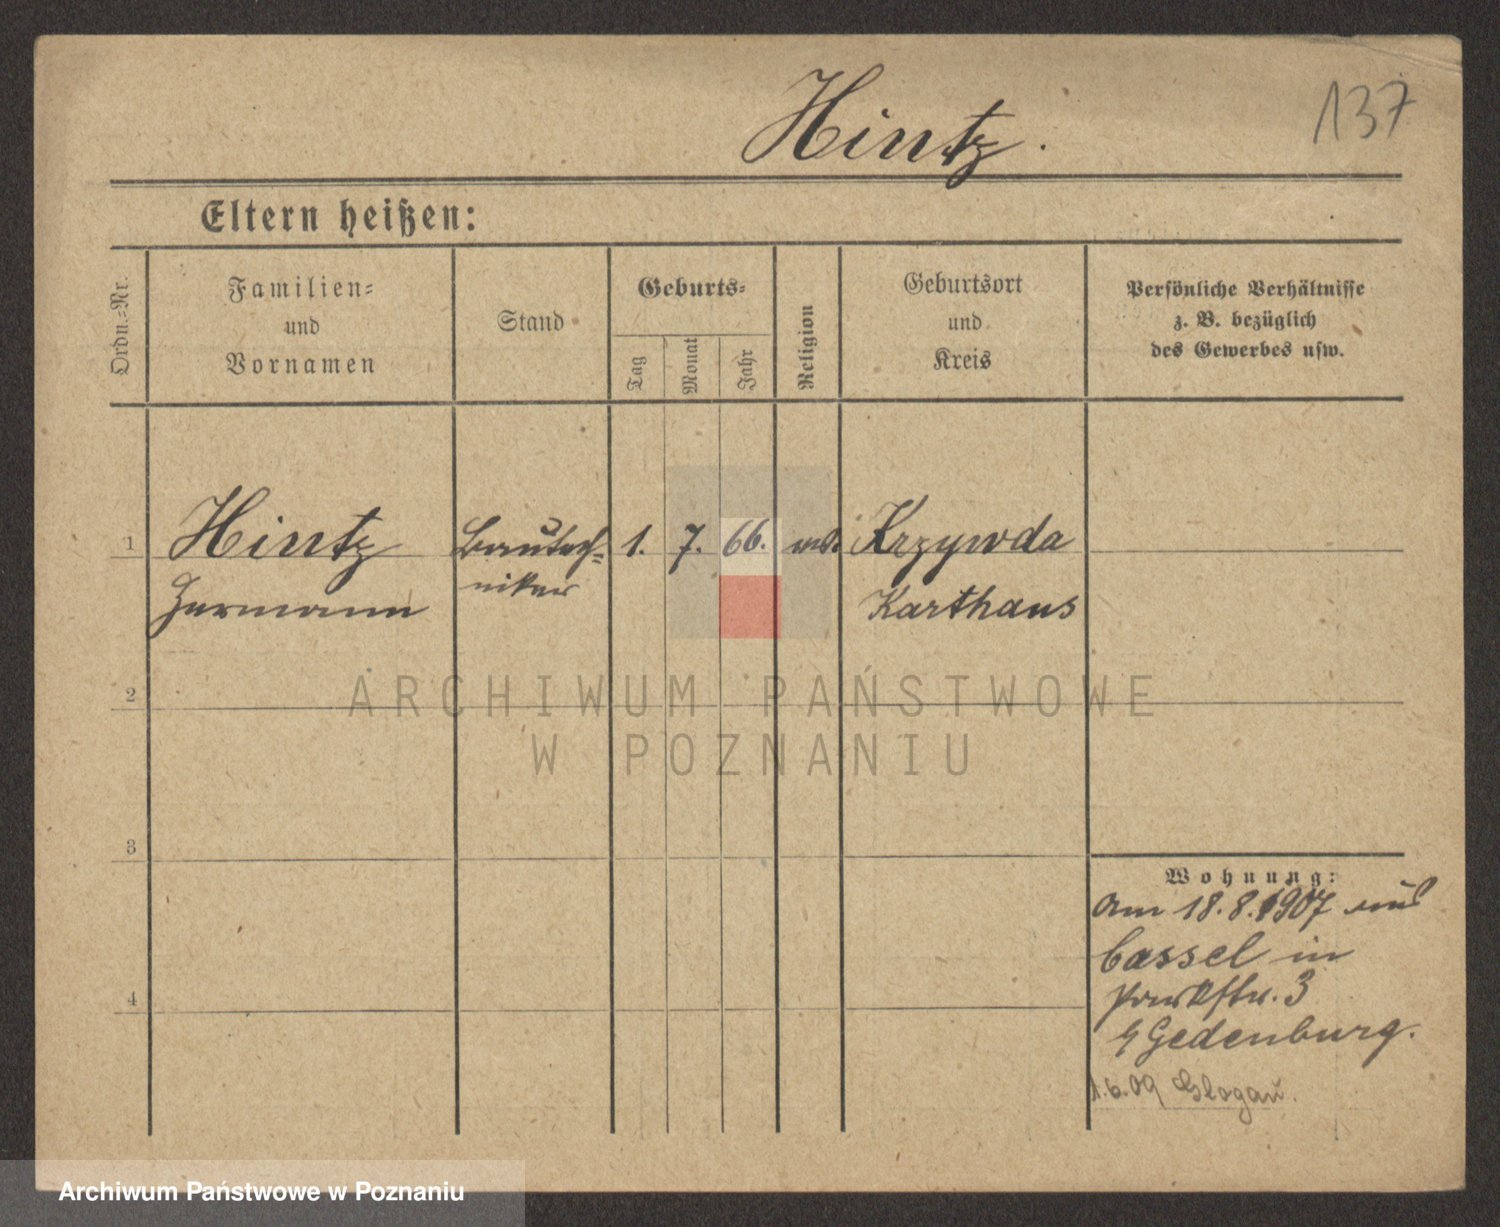 Hintz.
137
Eltern heißen:
Ordn.=Nr.
Familien=
und
Vornamen
Stand
Geburts=
Tag
Monat
Jahr
Religion
Geburtsort
und
Kreis
Persönliche Verhältnisse
z. B. bezüglich
des Gewerbes usw.
1
Hintz
Hermann
Bautech=
niker
1.
7.
66.
Krzywda
Karthaus
2
3
4
ARCHIWUM PAŃSTWOWE
W POZNANIU
Wohnung:
Am 18.8.1907 aus
Cassel in
Parkstr. 3
Gedenburg.
1.6.09 Glogau.
Archiwum Państwowe w Poznaniu